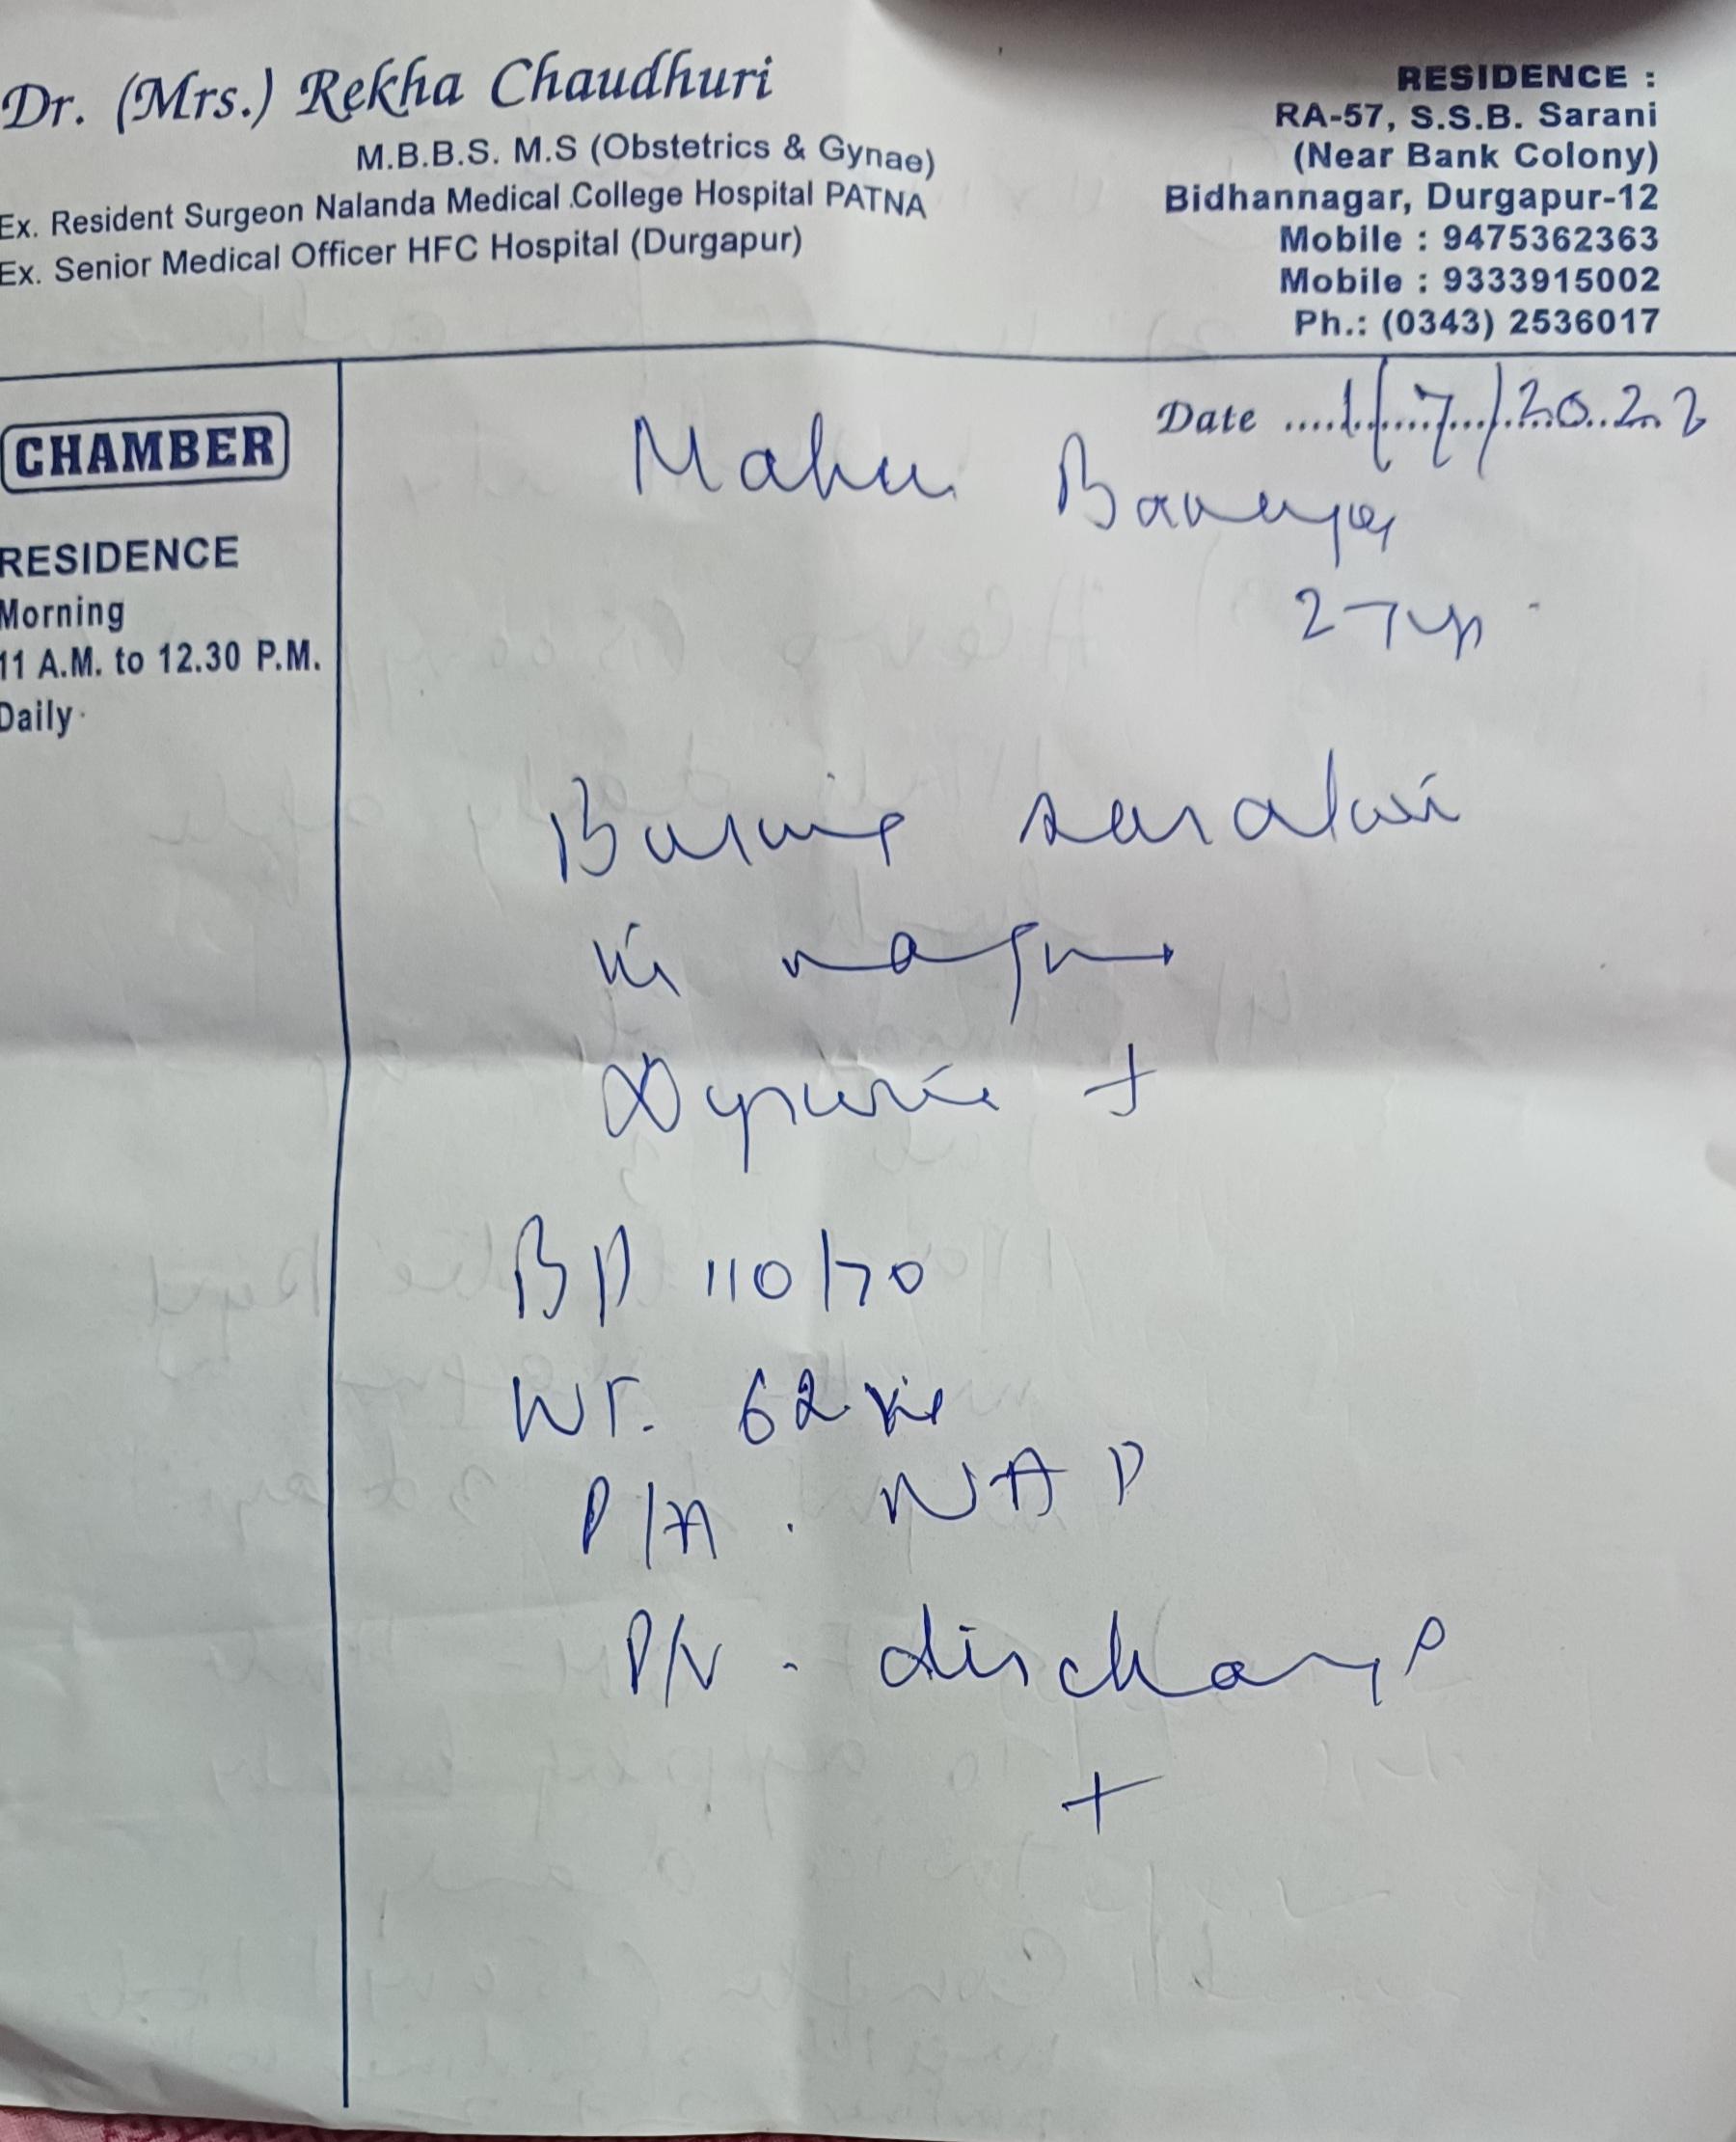 Dr. (Mrs.) Rekha Chaudhuri
M.B.B.S. M.S (Obstetrics & Gynae)
Ex. Resident Surgeon Nalanda Medical College Hospital PATNA
Ex. Senior Medical Officer HFC Hospital (Durgapur)
RESIDENCE :
RA-57, S.S.B. Sarani
(Near Bank Colony)
Bidhannagar, Durgapur-12
Mobile : 9475362363
Mobile : 9333915002
Ph.: (0343) 2536017
CHAMBER
RESIDENCE
Morning
11 A.M. to 12.30 P.M.
Daily
Date 1/7/2022
Banerjee
27 yr
Burning sensation
in vagina
Dysuria +
BP 110/70
WT. 62 kg
P/A . NAD
P/V - discharge
+